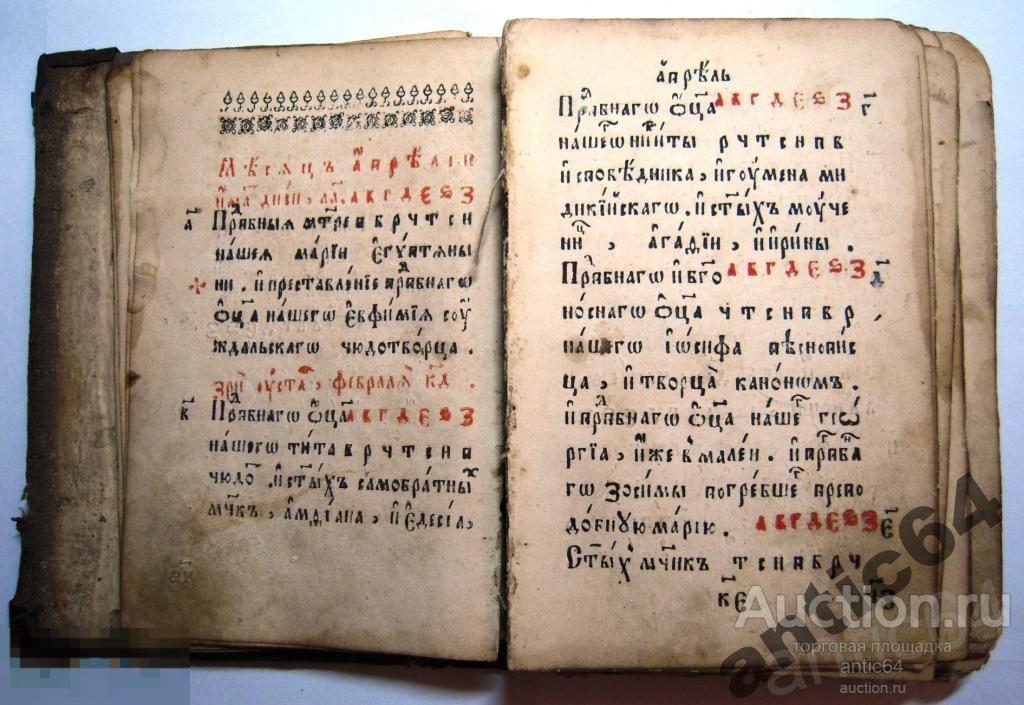 Мѣсяцъ а҆прѣлїи
и҆мат дней, л҃. А В Г Д Е Ѕ З
а҃ Прп̣бныя мт҃ре а в р ч т с н
нашея марїи є҆гѵптяны
ни . и҆ преставленїе прп̣бнагѡ
ѻ҆ц҃а нашегѡ є҆вфимїя соу
ждальскагѡ чюдотворца .
зри оуста , февраля к҃д .
в҃ Прп̣бнагѡ ѻ҆ц҃а А В Г Д Е Ѕ З
нашегѡ тита в р ч т с н а
чюдо . и҆ ст҃ыхъ самобратны
мч҃къ , а҆мдїана , и҆ є҆десїа ,
а҆прѣль
Прп̣бнагѡ ѻ҆ц҃а А В Г Д Е Ѕ З г҃
нашегѡ никиты р ч т с н а в
и҆сповѣдника , и҆гоумена ми
дикїйскагѡ . и҆ ст҃ыхъ моуче
ни , а҆гадїи , и҆ и҆рины .
Прп̣бнагѡ и҆ бг҃о А В Г Д Е Ѕ З д҃
носнагѡ ѻ҆ц҃а ч т с н а в р ,
нашегѡ і҆ѡсифа пѣснопис
ца , и҆ творца канонѡмъ .
и҆ прп̣бнагѡ ѻ҆ц҃а нашег геѡ
ргїа , и҆же в малеи . и҆ прп̣бна
гѡ зосимы погребшег препо
добную марїю . А В Г Д Е Ѕ З е҃
Ст҃ых мч҃никъ т с н а в р ч
к҃е
Auction.ru
торговая площадка
antic64
auction.ru
antic64